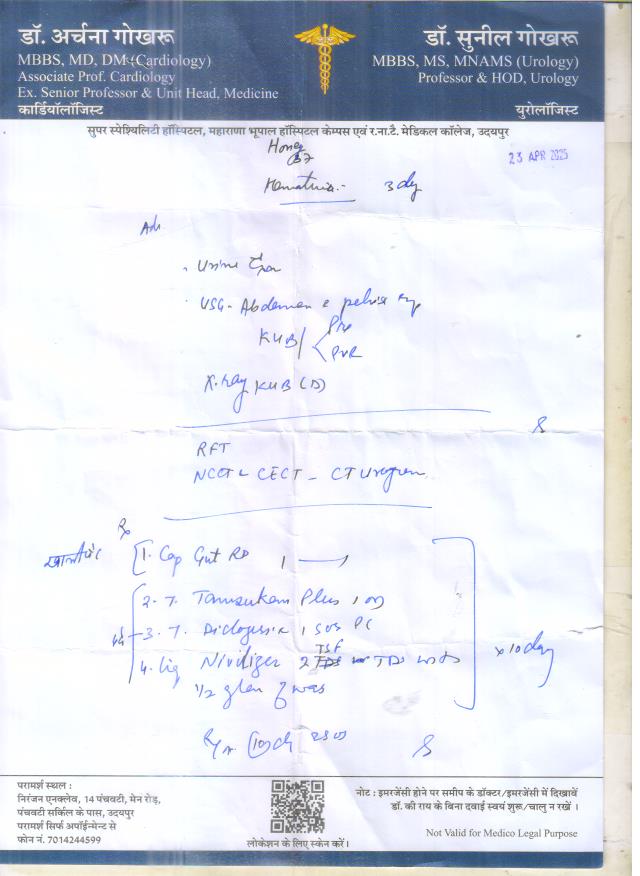 डॉ. अर्चना गोखरू
MBBS, MD, DM (Cardiology)
Associate Prof. Cardiology
Ex. Senior Professor & Unit Head, Medicine
कार्डियॉलॉजिस्ट
डॉ. सुनील गोखरू
MBBS, MS, MNAMS (Urology)
Professor & HOD, Urology
युरोलॉजिस्ट
सुपर स्पेश्यिलिटी हॉस्पिटल, महाराणा भूपाल हॉस्पिटल केम्पस एवं र.ना.टै. मेडिकल कॉलेज, उदयपुर
23 APR 2025
Hematuria - 3 day
Adv.
Urine
USG - Abdomen & pelvis
KUB / Pre
PVR
X-ray KUB (D)
RFT
NCCT & CECT - CT Urogram
Rx
1. Cap Gut RD 1
2. T. Plus 1
3. T. 1 SOS PC
4. Liq 2 TSF TDS
1/2 glass of
x 10 day
परामर्श स्थल :
निरंजन एनक्लेव, 14 पंचवटी, मेन रोड़,
पंचवटी सर्किल के पास, उदयपुर
परामर्श सिर्फ अपॉईन्मेन्ट से
फोन नं. 7014244599
लोकेशन के लिए स्केन करें ।
नोट : इमरजेंसी होने पर समीप के डॉक्टर/इमरजेंसी में दिखावें
डॉ. की राय के बिना दवाई स्वयं शुरू/चालु न रखें ।
Not Valid for Medico Legal Purpose